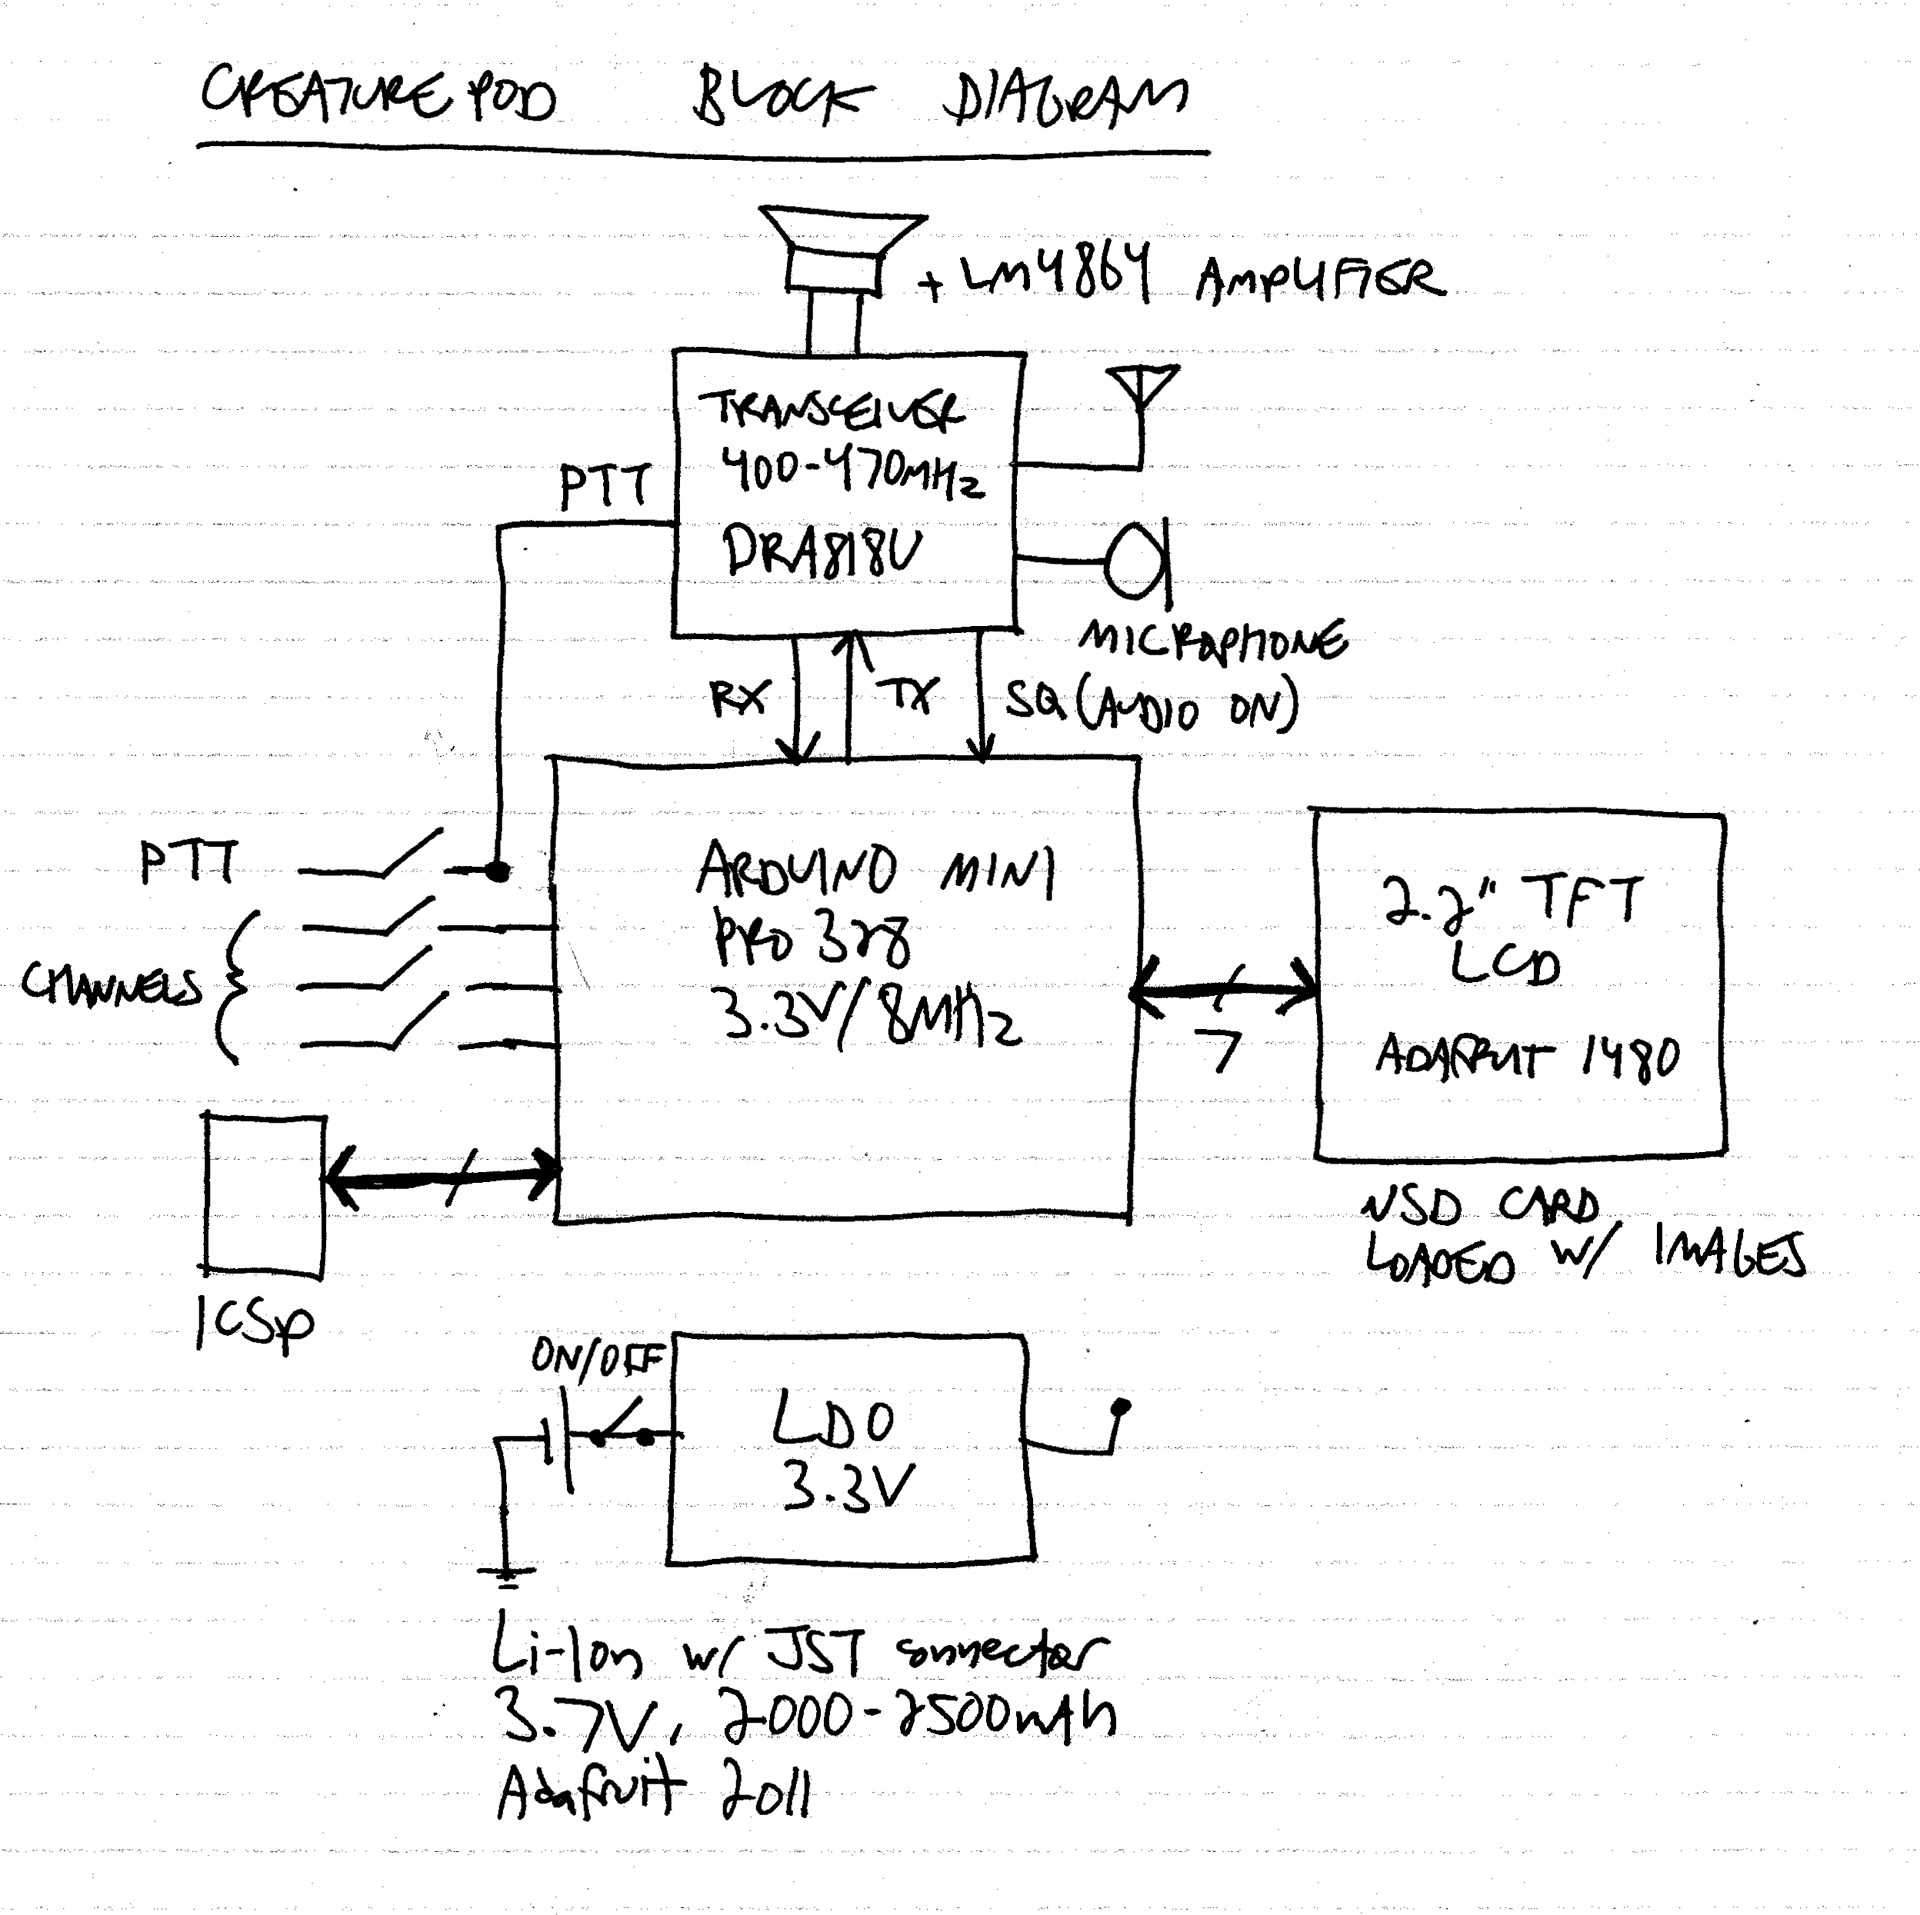 CREATUREPOD BLOCK DIAGRAM
+ LM4864 AMPLIFIER
TRANSCEIVER
400-470MHz
DRA818U
PTT
MICROPHONE
RX
TX
SQ (AUDIO ON)
PTT
CHANNELS
ARDUINO MINI
PRO 328
3.3V/8MHz
7
2.2" TFT
LCD
ADAFRUIT 1480
USD CARD
LOADED W/ IMAGES
ICSP
ON/OFF
LDO
3.3V
Li-Ion w/ JST connector
3.7V, 2000-2500mAh
Adafruit 2011